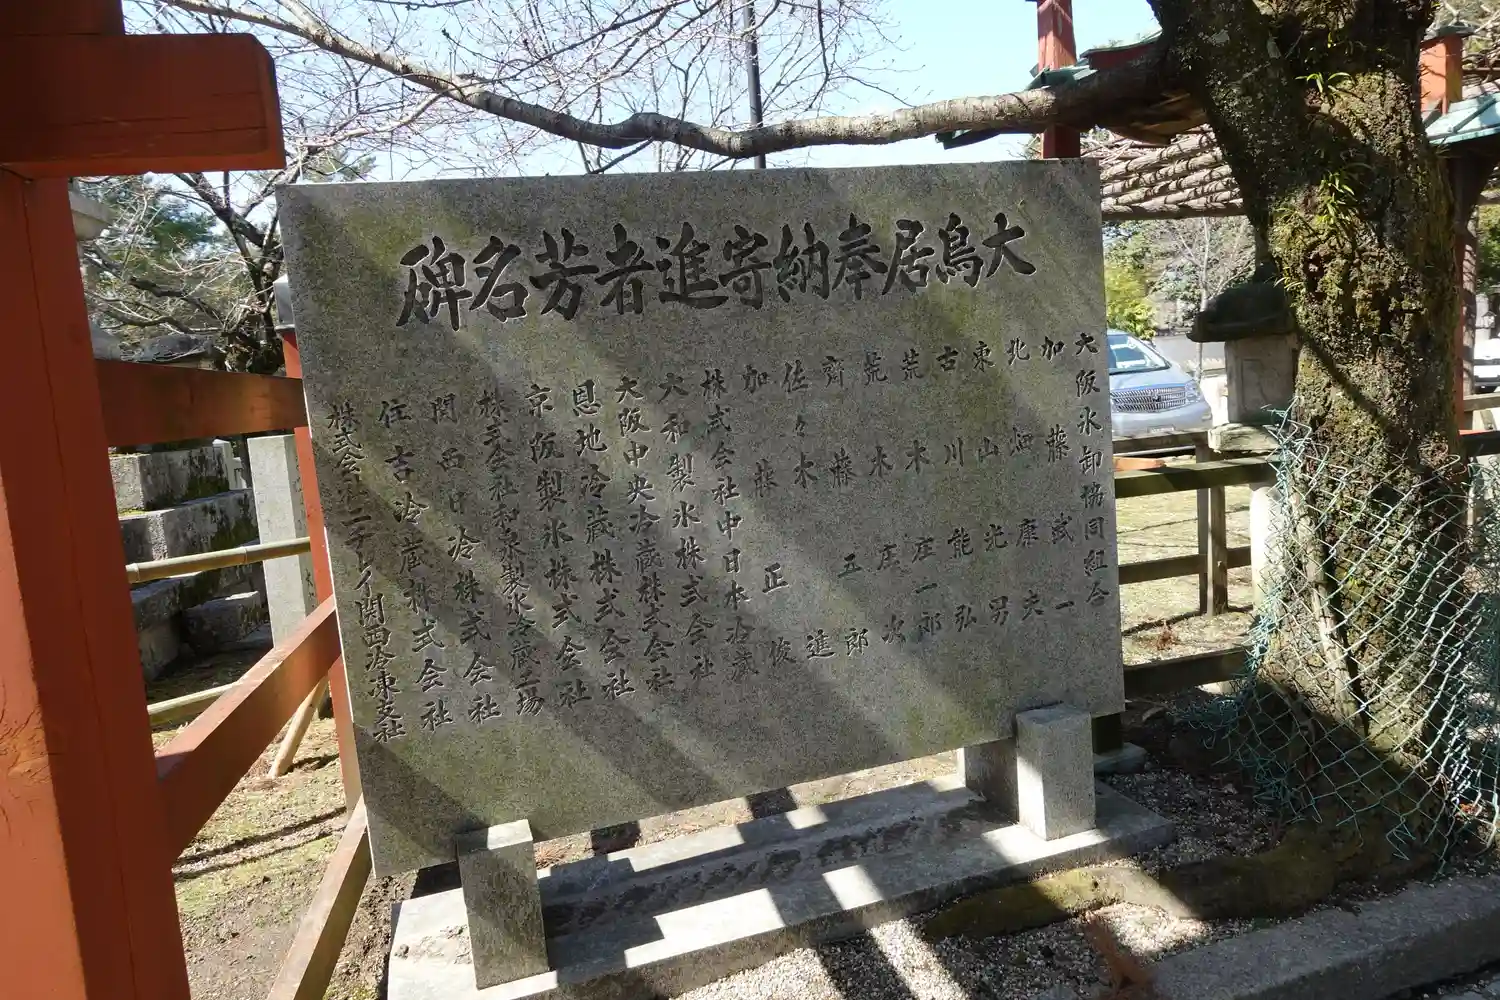 大鳥居奉納寄進者芳名碑
大阪氷卸協同組合
加藤武一
北畑康夫
東山光男
古川能弘
荒木庄一郎
荒木庄次
齊藤五郎
佐々木進
加藤正俊
株式会社中日氷冷蔵
大和製氷株式会社
大阪中央冷蔵株式会社
恩地冷蔵株式会社
京阪製氷株式会社
株式会社和泉製氷冷蔵工場
関西日冷株式会社
住吉冷蔵株式会社
株式会社ニチレイ関西冷凍支社